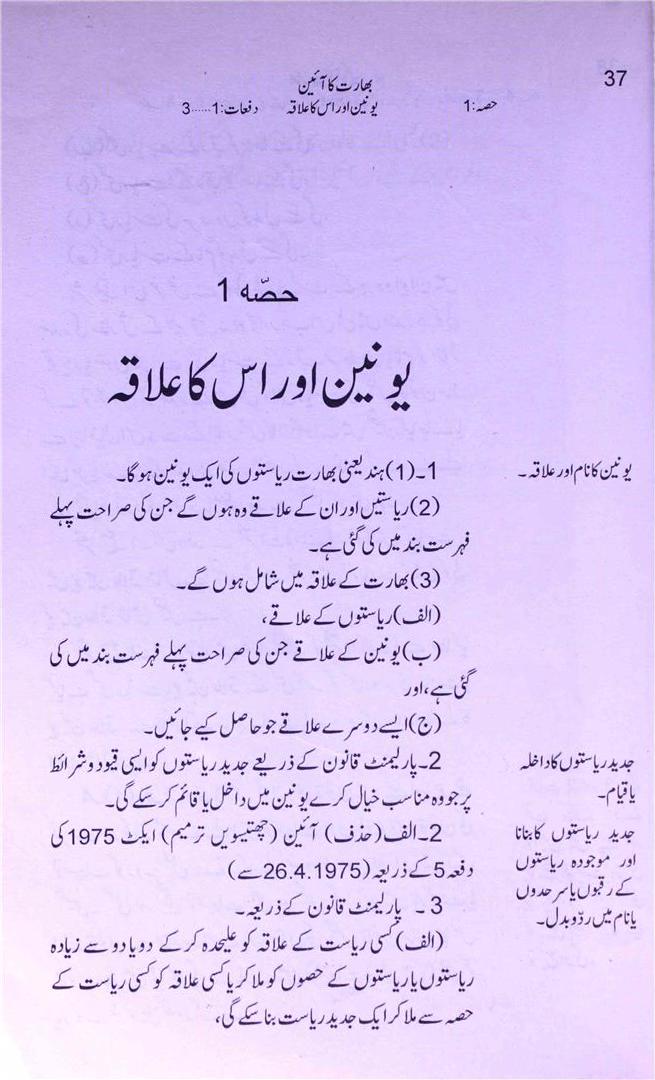 37
بھارت کا آئین
حصہ:1 یونین اور اس کا علاقہ دفعات:1......3
حصّہ 1
یونین اور اس کا علاقہ
یونین کا نام اور علاقہ۔
1۔(1) ہند یعنی بھارت ریاستوں کی ایک یونین ہوگا۔
(2) ریاستیں اور ان کے علاقے وہ ہوں گے جن کی صراحت پہلے
فہرست بند میں کی گئی ہے۔
(3) بھارت کے علاقہ میں شامل ہوں گے۔
(الف) ریاستوں کے علاقے،
(ب) یونین کے علاقے جن کی صراحت پہلے فہرست بند میں کی
گئی ہے، اور
(ج) ایسے دوسرے علاقے جو حاصل کیے جائیں۔
جدید ریاستوں کا داخلہ
یا قیام۔
2۔ پارلیمنٹ قانون کے ذریعے جدید ریاستوں کو ایسی قیود و شرائط
پر جو وہ مناسب خیال کرے یونین میں داخل یا قائم کر سکے گی۔
جدید ریاستوں کا بنانا
اور موجودہ ریاستوں
کے رقبوں یا سرحدوں
یا نام میں ردّ و بدل۔
2۔ الف (حذف) آئین (چھتیسویں ترمیم) ایکٹ 1975 کی
دفعہ 5 کے ذریعہ (26.4.1975 سے)
3 ۔ پارلیمنٹ قانون کے ذریعہ۔
(الف) کسی ریاست کے علاقہ کو علیحدہ کر کے دو یا دو سے زیادہ
ریاستوں یا ریاستوں کے حصوں کو ملا کر یا کسی علاقہ کو کسی ریاست کے
حصہ سے ملا کر ایک جدید ریاست بنا سکے گی،